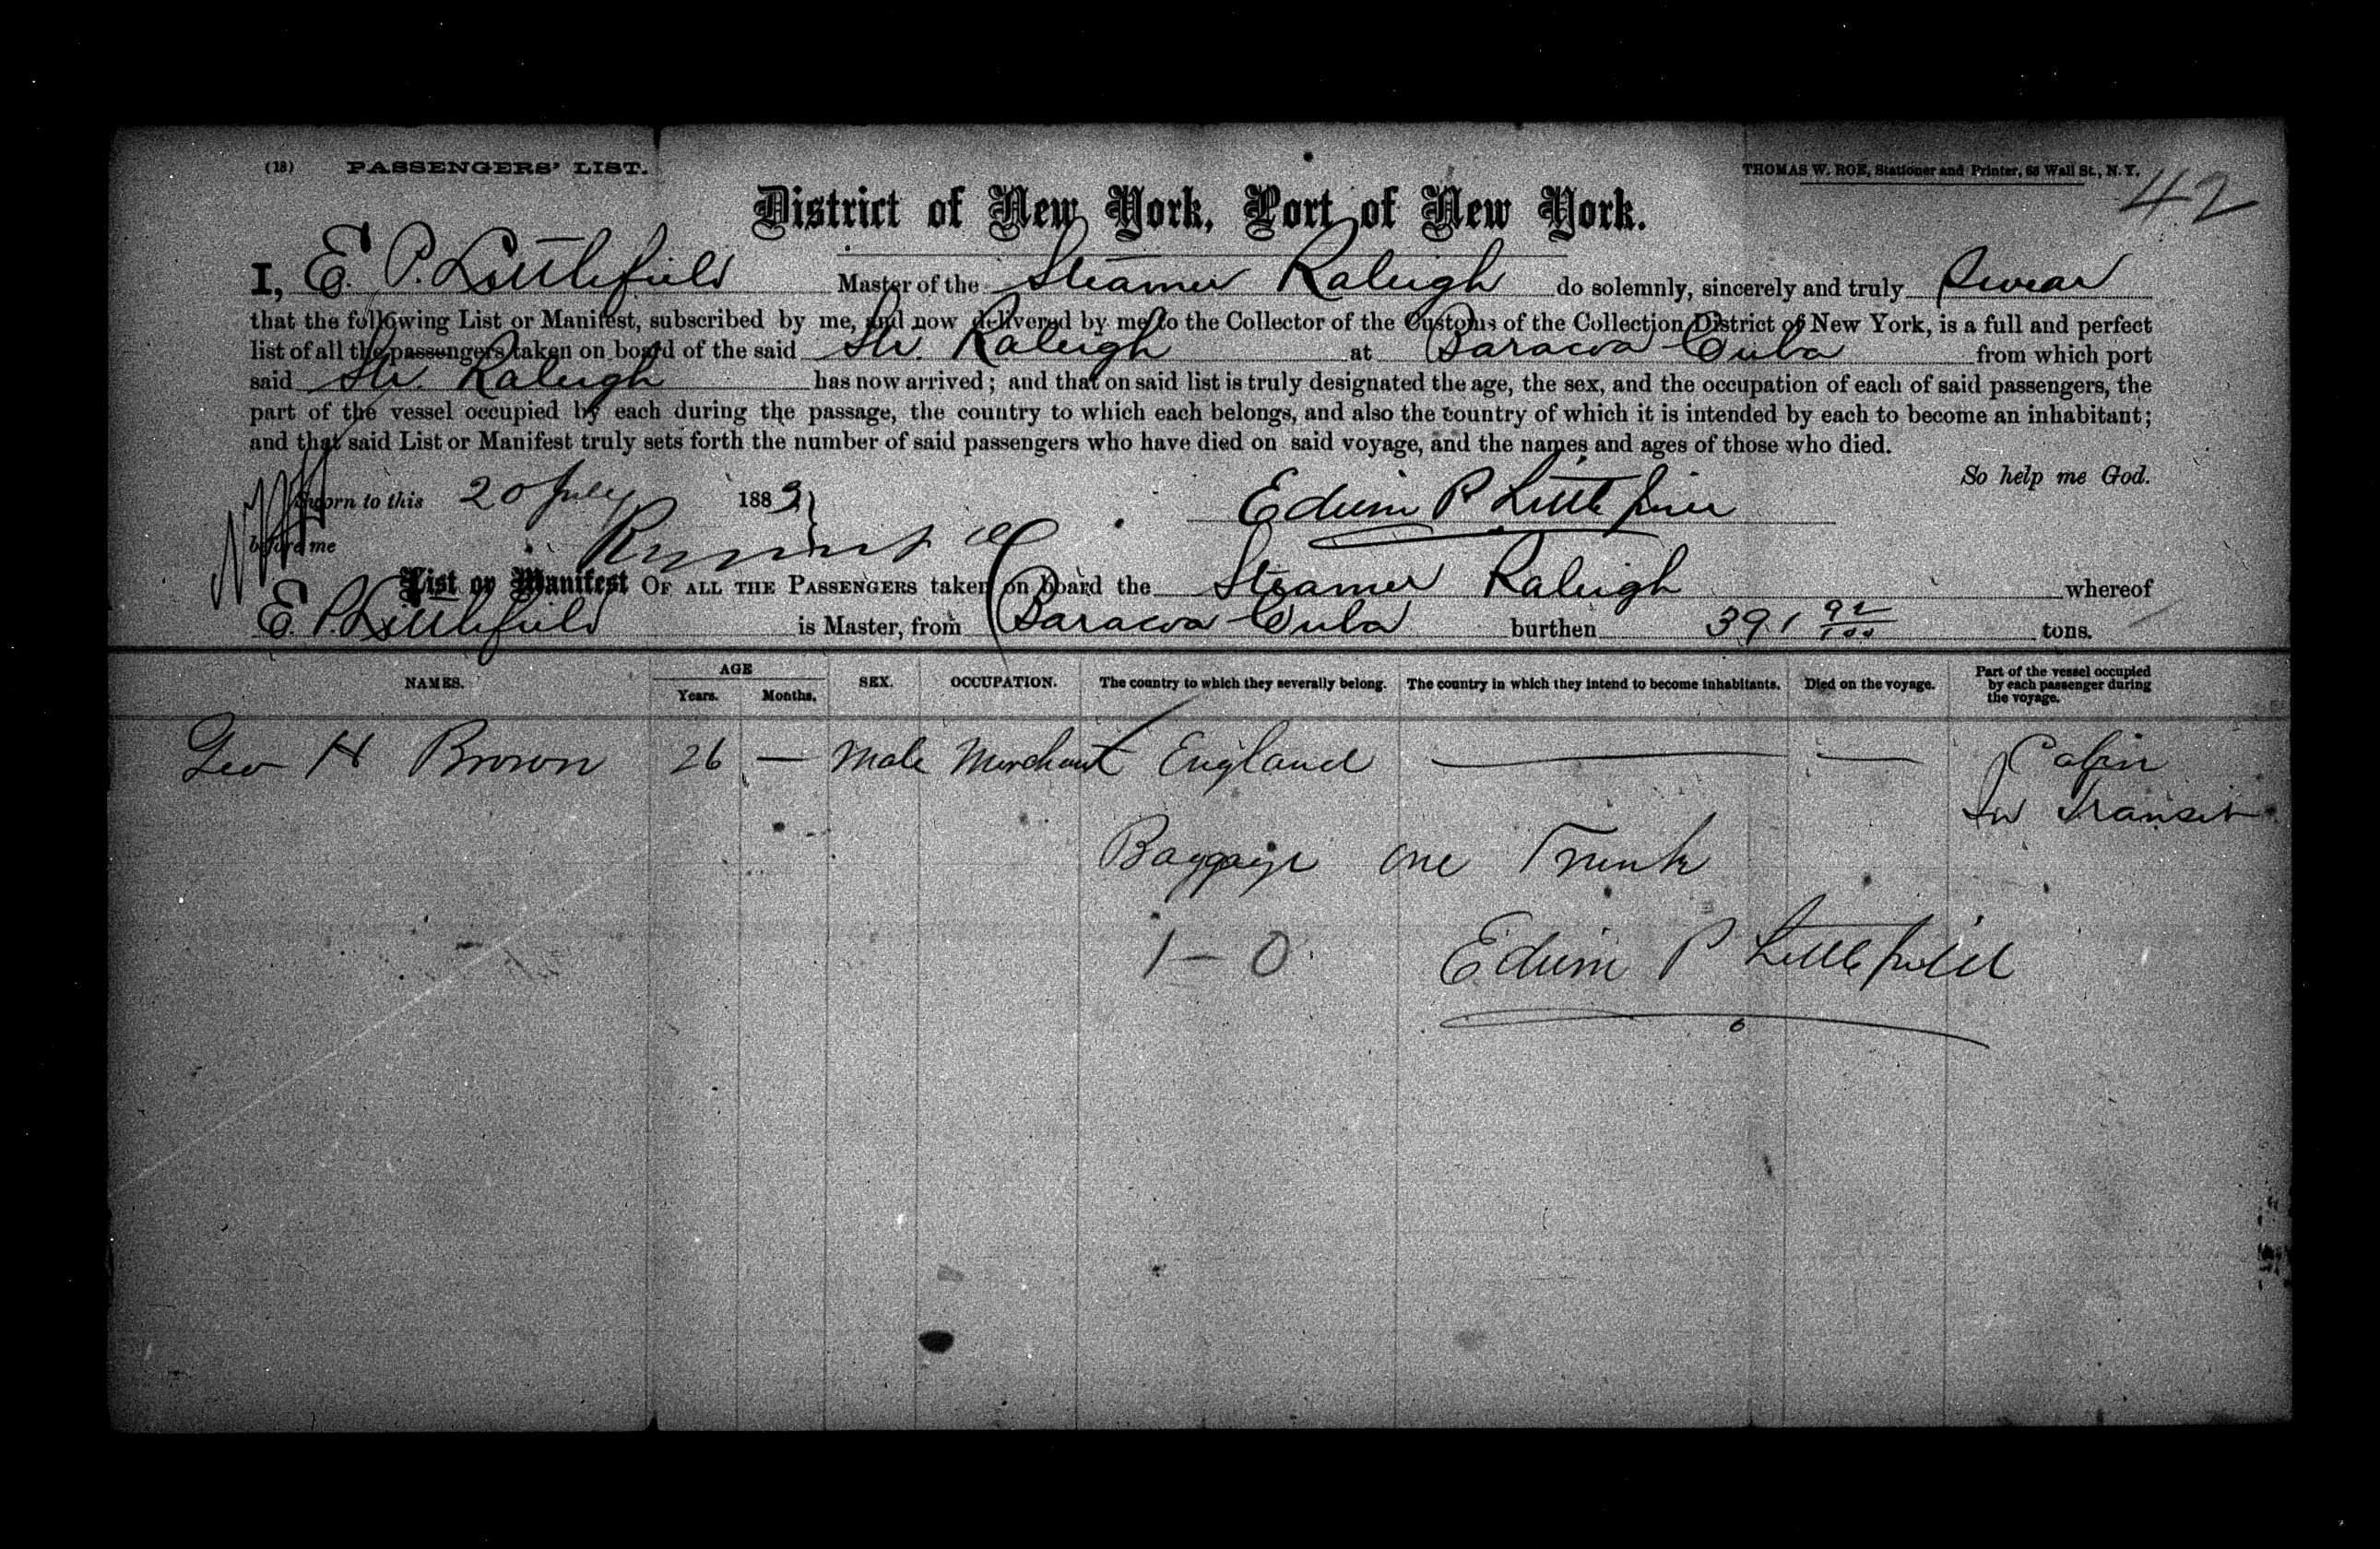 (18) PASSENGERS' LIST.
THOMAS W. ROE, Stationer and Printer, 63 Wall St., N. Y.
42
District of New York, Port of New York.
I, E. P. Littlefield Master of the Steamer Raleigh do solemnly, sincerely and truly Swear
that the following List or Manifest, subscribed by me, and now delivered by me to the Collector of the Customs of the Collection District of New York, is a full and perfect
list of all the passengers taken on board of the said Str. Raleigh at Baracoa Cuba from which port
said Str. Raleigh has now arrived; and that on said list is truly designated the age, the sex, and the occupation of each of said passengers, the
part of the vessel occupied by each during the passage, the country to which each belongs, and also the country of which it is intended by each to become an inhabitant;
and that said List or Manifest truly sets forth the number of said passengers who have died on said voyage, and the names and ages of those who died.
So help me God.
Sworn to this 20 July 188
Edwin P Littlefield
before me
List or Manifest OF ALL THE PASSENGERS taken on board the Steamer Raleigh whereof
E. P. Littlefield is Master, from Baracoa Cuba burthen 391 92/100 tons.
NAMES. AGE Years. Months. SEX. OCCUPATION. The country to which they severally belong. The country in which they intend to become inhabitants. Died on the voyage. Part of the vessel occupied by each passenger during the voyage.
Geo H Brown 26 — Male Merchant England — — Cabin
In Transit
Baggage one Trunk
1 – 0
Edwin P Littlefield